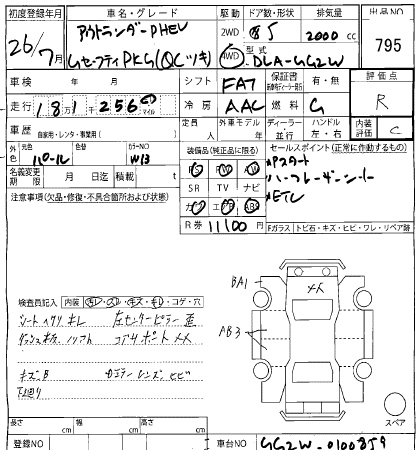 初度登録年月 車名・グレード 駆動 ドア数・形状 排気量 出品NO
26/7月 アウトランダーPHEV 2WD 5 2000 cc 795
Gセーフティ PKG (QCツキ) 4WD 型式 DLA-GG2W
車検 年 月 シフト FAT 保証書 有・無 評価点
走行 18万1千256 km マイル 冷房 AAC 燃料 G R
車歴 自家用・レンタ・事業用( ) 定員 人 外車モデル 年 ディーラー 並行 ハンドル 左・右 内装評価 C
外色 元色 パール 色替 カラーNO W13 装備品(純正品に限る) セールスポイント(正常に作動するもの)
名義変更期限 月 日迄 積載 t PS PW AW
SR TV ナビ ハーフレザーシート
注意事項(欠品・修復・不具合個所および状態) ETC
エアB ABS
R券 11100円 Fガラス トビ石・キズ・ヒビ・ワレ・リペア跡
BA1 メメ
AB3
検査員記入 内装 汚レ・スレ・キズ・キレ・コゲ・穴
シートヘタリ キレ 左センターピラー 歪
コアサポート メメ
キズB カメラ レンズ ヒビ
下廻り
スペア
長さ cm 幅 cm 高さ cm
登録NO 車台NO GG2W-0100859